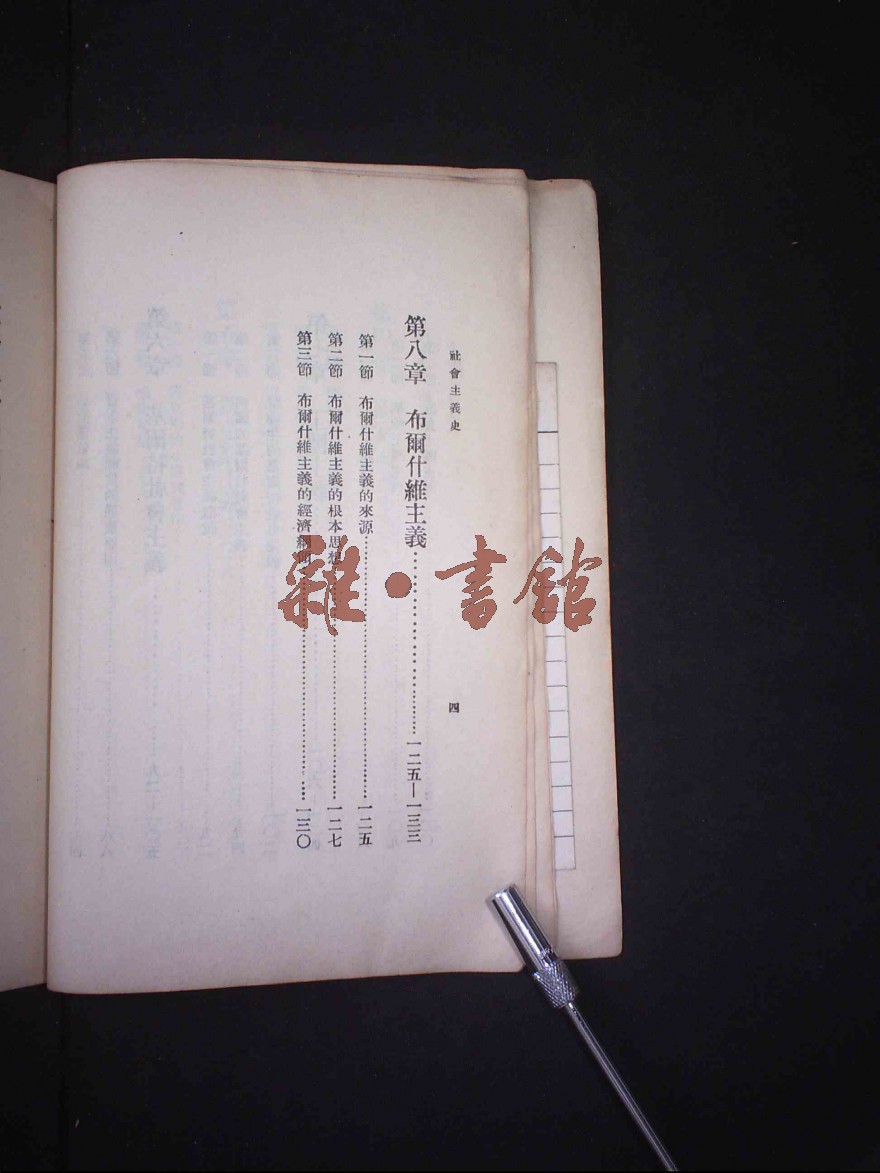 社會主義史
四
第八章 布爾什維主義………………一二五—一三三
第一節 布爾什維主義的來源………………一二五
第二節 布爾什維主義的根本思想………………一二七
第三節 布爾什維主義的經濟綱領………………一三〇
雜·書館